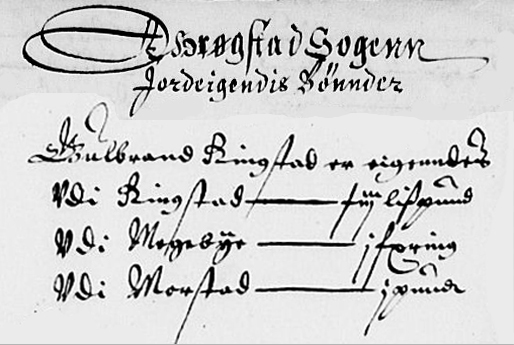 Thrøgstad Sogenn
Jordeigendis Bønnder
Gulbrand Ringstad er eigenndes
Vdi Ringstad — lispund
Vdi Mogebye — j fxring
Vdi Morstad — j pundt